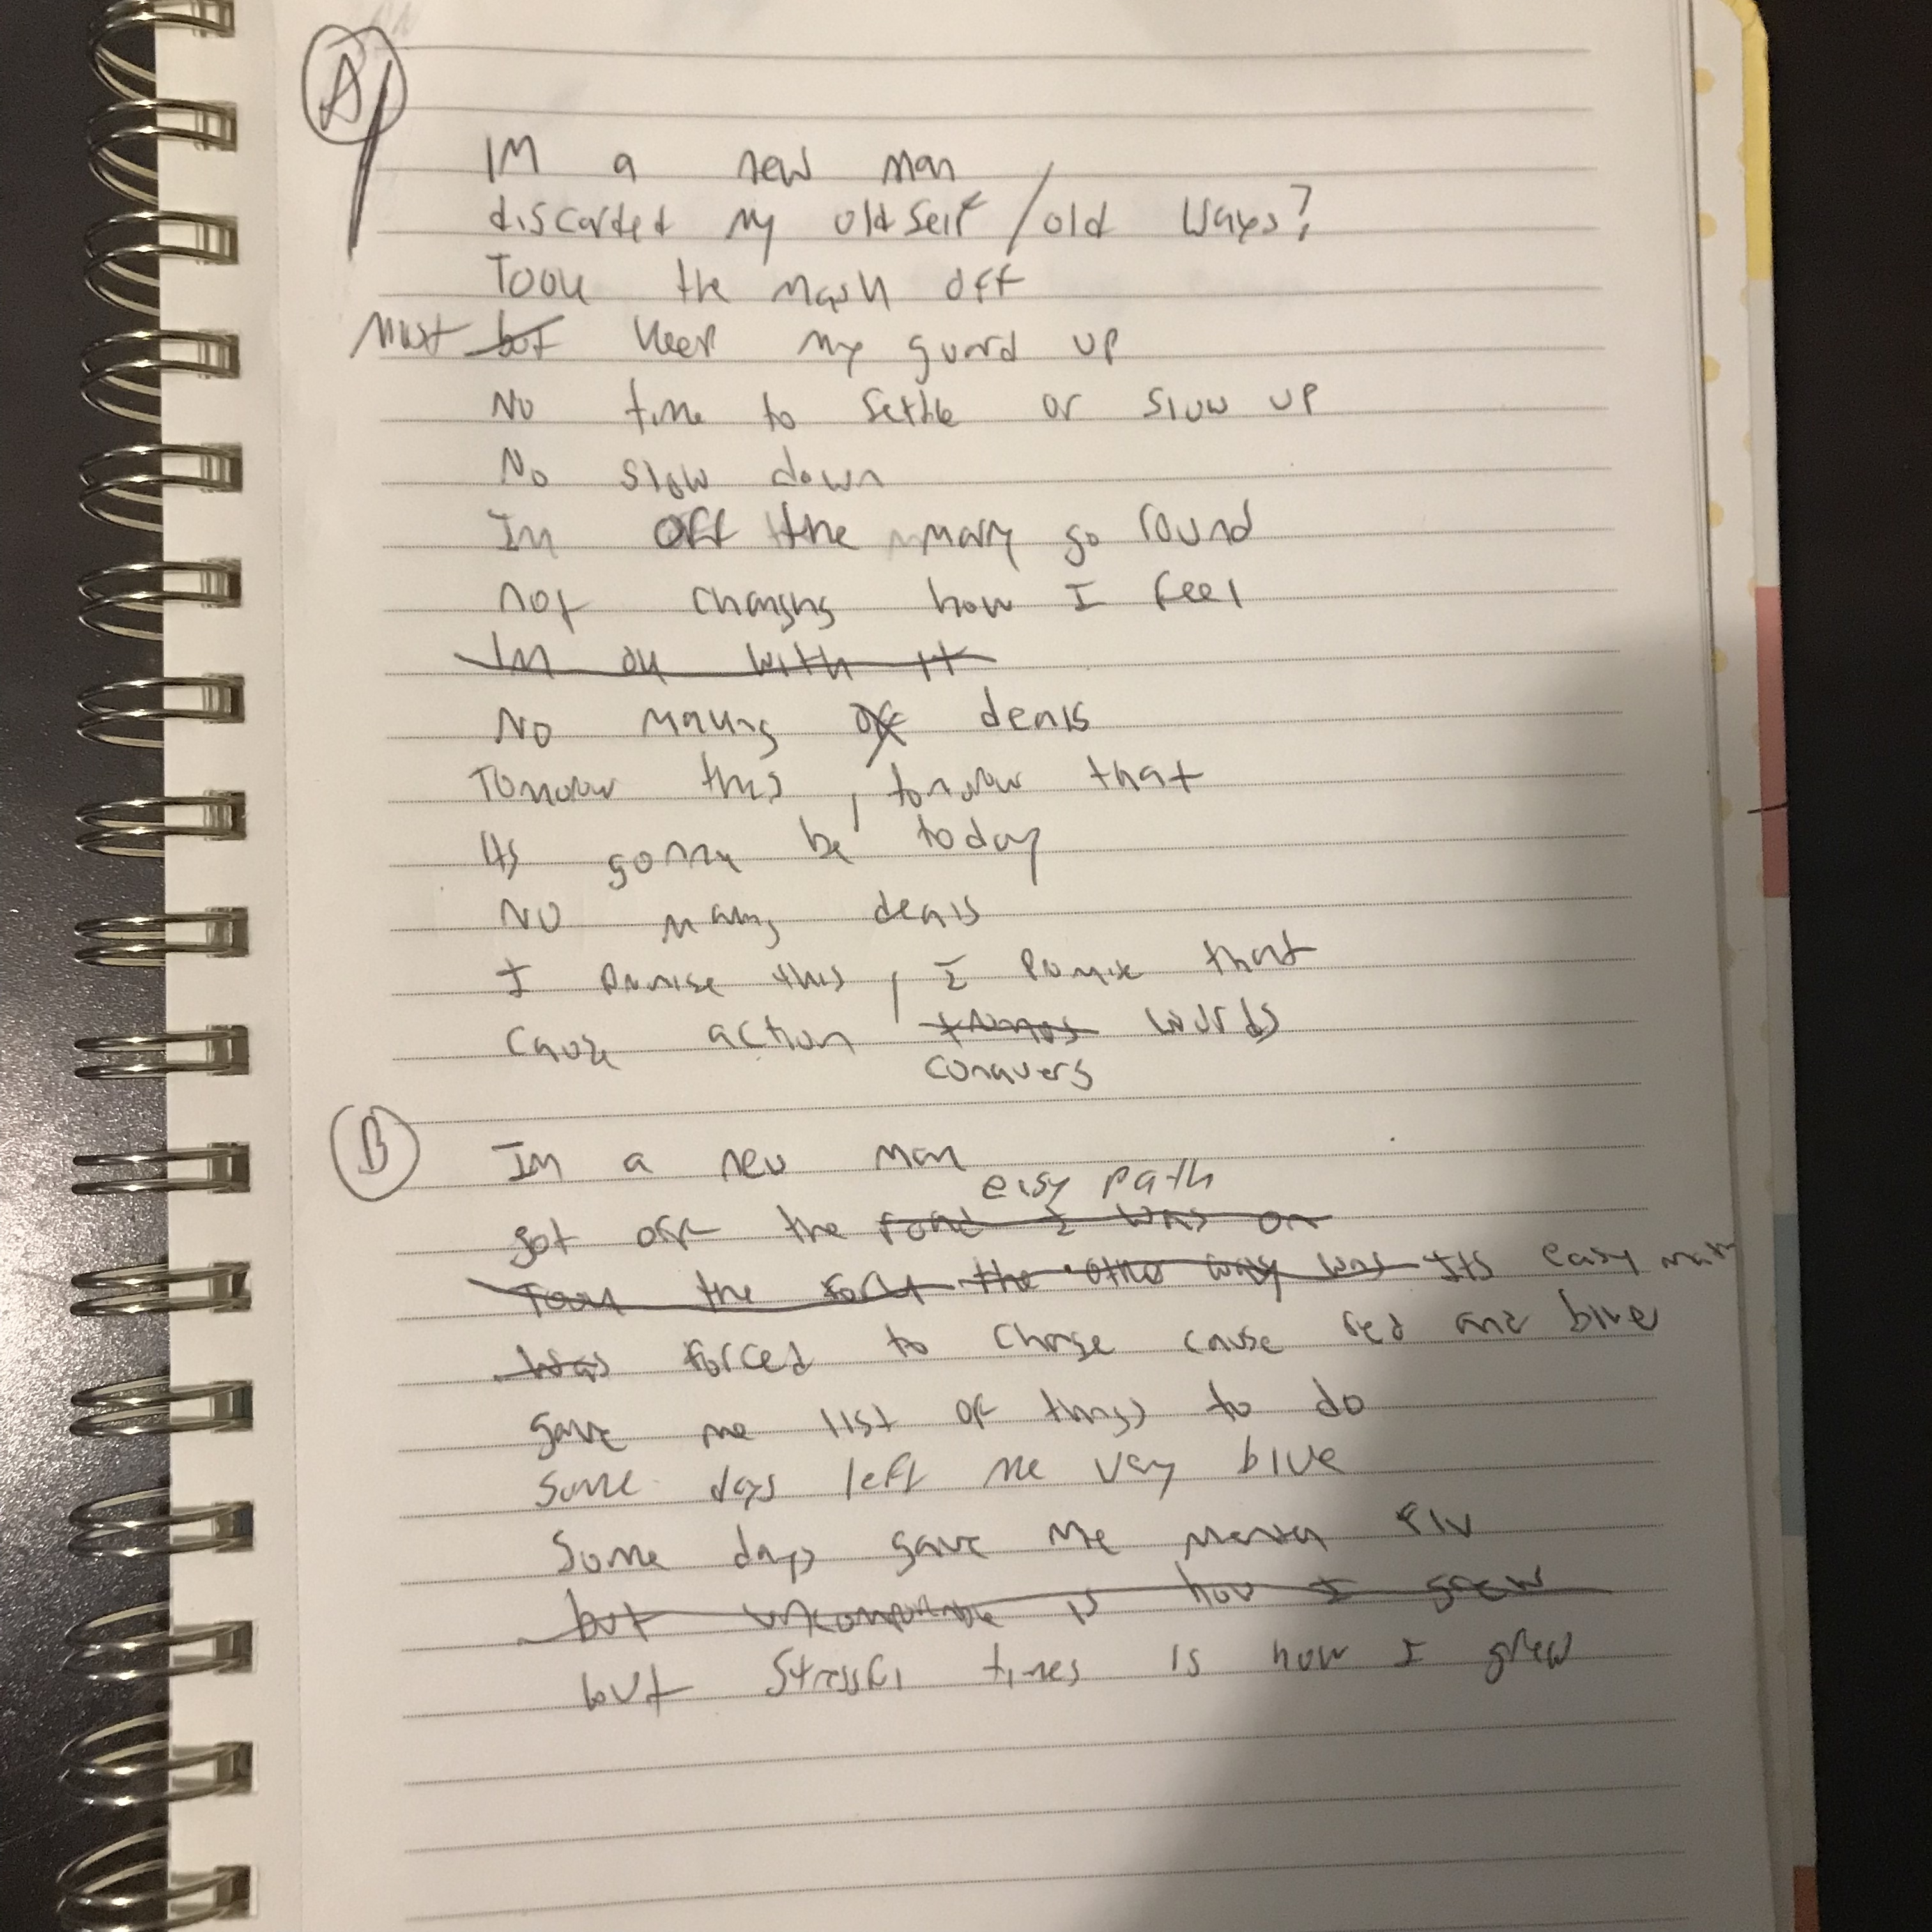 A
IM a new man
discarded my old self / old ways?
Took the mask off
Must but keep my guard up
No time to settle or slow up
No slow down
Im off the mary go round
not changing how I feel
Im ok with it
No making of deals
Tomorrow this, tomorrow that
Its gonna be today
No making deals
I promise this, I promise that
Cause action words
conquers
B
Im a new man
easy path
got off the road I was on
Took the fork the other way was Its easy
Was forced to change cause red and blue
gave me list of things to do
Some days left me very blue
Some days gave me mental flu
but uncomfortable is how I grew
but stressful times is how I grew